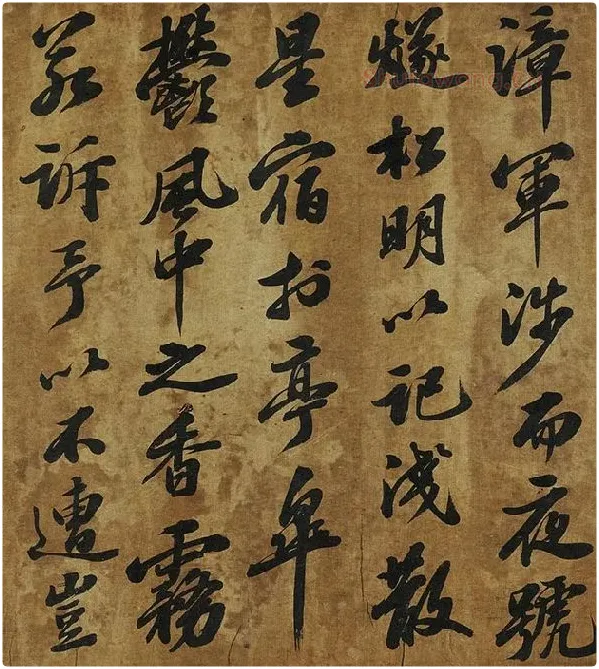 漳軍涉而夜號
燧松明以記淺散
星宿於亭皋
鬱風中之香霧
若訴予以不遭豈